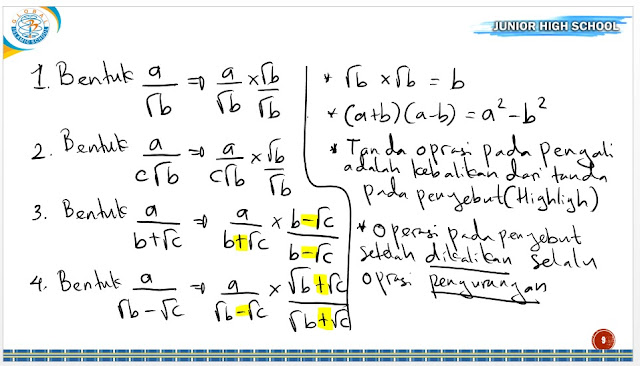 GLOBAL
ISLAMIC SCHOOL
JUNIOR HIGH SCHOOL
1. Bentuk a/√b ⇒ a/√b × √b/√b
2. Bentuk a/c√b ⇒ a/c√b × √b/√b
3. Bentuk a/b+√c ⇒ a/b+√c × b-√c/b-√c
4. Bentuk a/√b-√c ⇒ a/√b-√c × √b+√c/√b+√c
* √b × √b = b
* (a+b)(a-b) = a²-b²
* Tanda oprasi pada pengali
adalah kebalikan dari tanda
pada penyebut (Highligh)
* Operasi pada penyebut
setelah dikalikan selalu
oprasi pengurangan
9